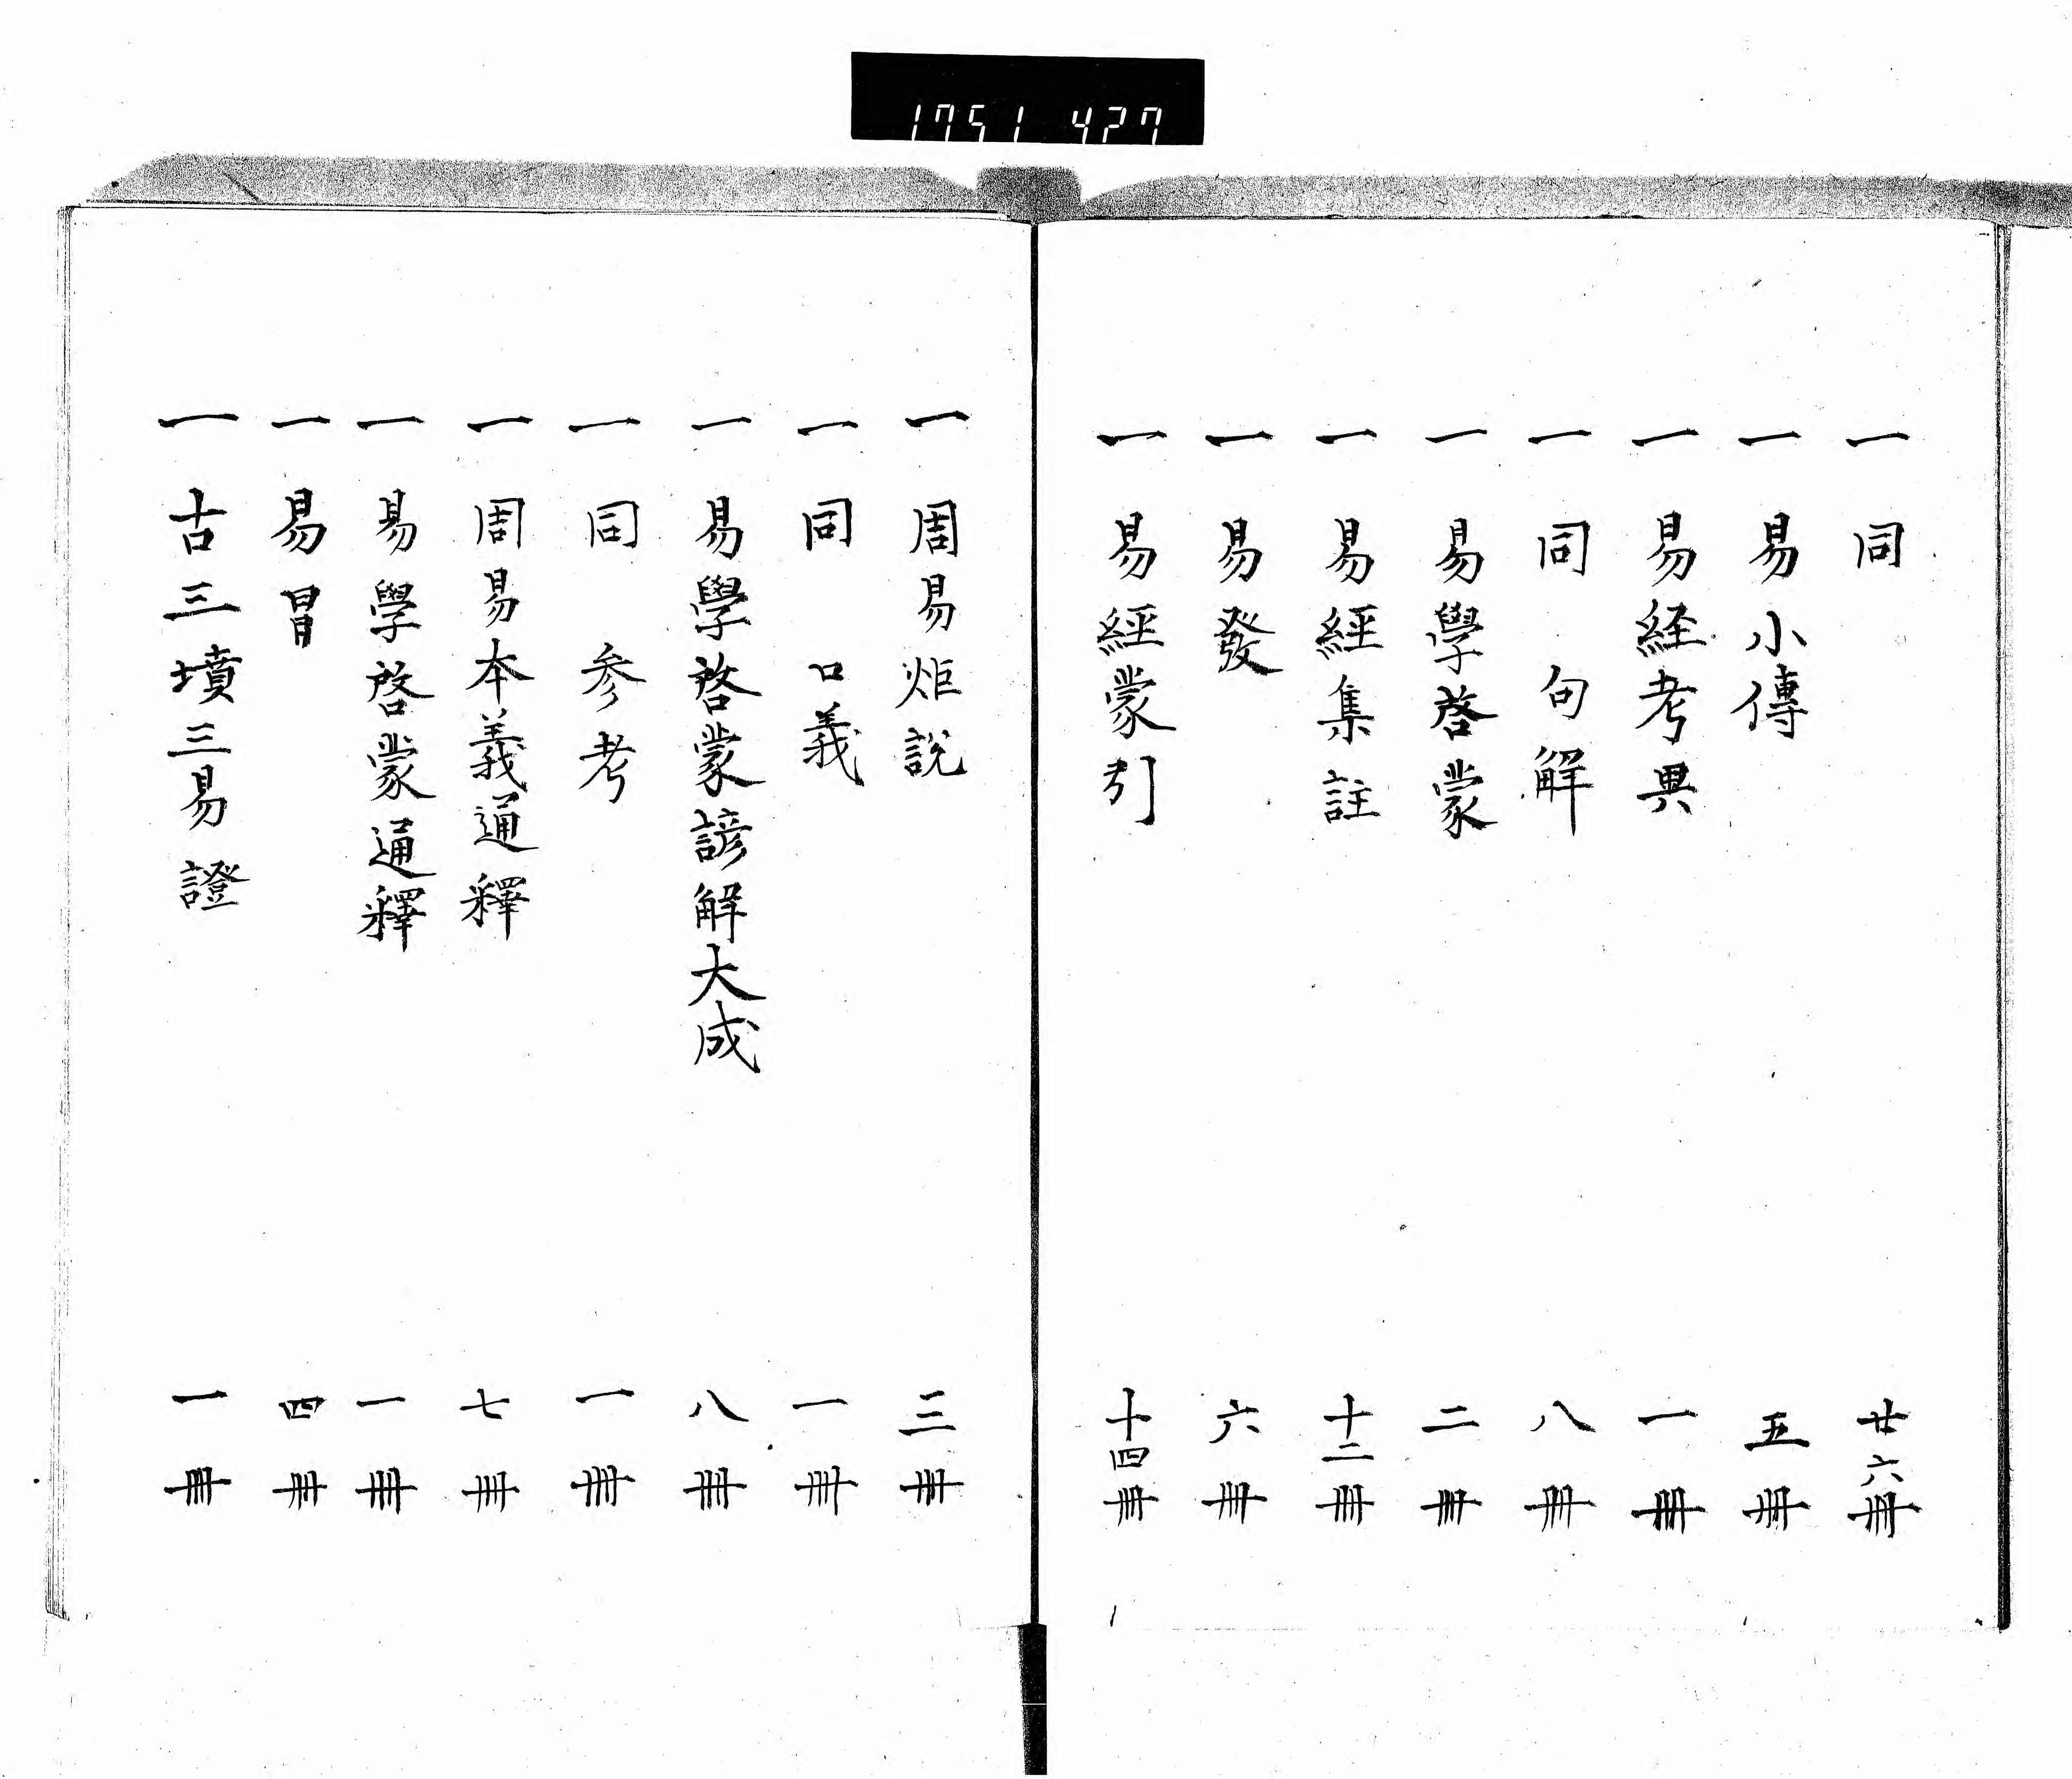 1751 427
一 同 廿六冊
一 易小傳 五冊
一 易経考異 一冊
一 同 句解 八冊
一 易學啓蒙 二冊
一 易經集註 十二冊
一 易發 六冊
一 易經蒙引 十四冊
一 周易炬説 三冊
一 同 口義 一冊
一 易學啓蒙諺解大成 八冊
一 同 参考 一冊
一 周易本義通釋 七冊
一 易學啓蒙通釋 一冊
一 易冒 四冊
一 古三墳三易證 一冊